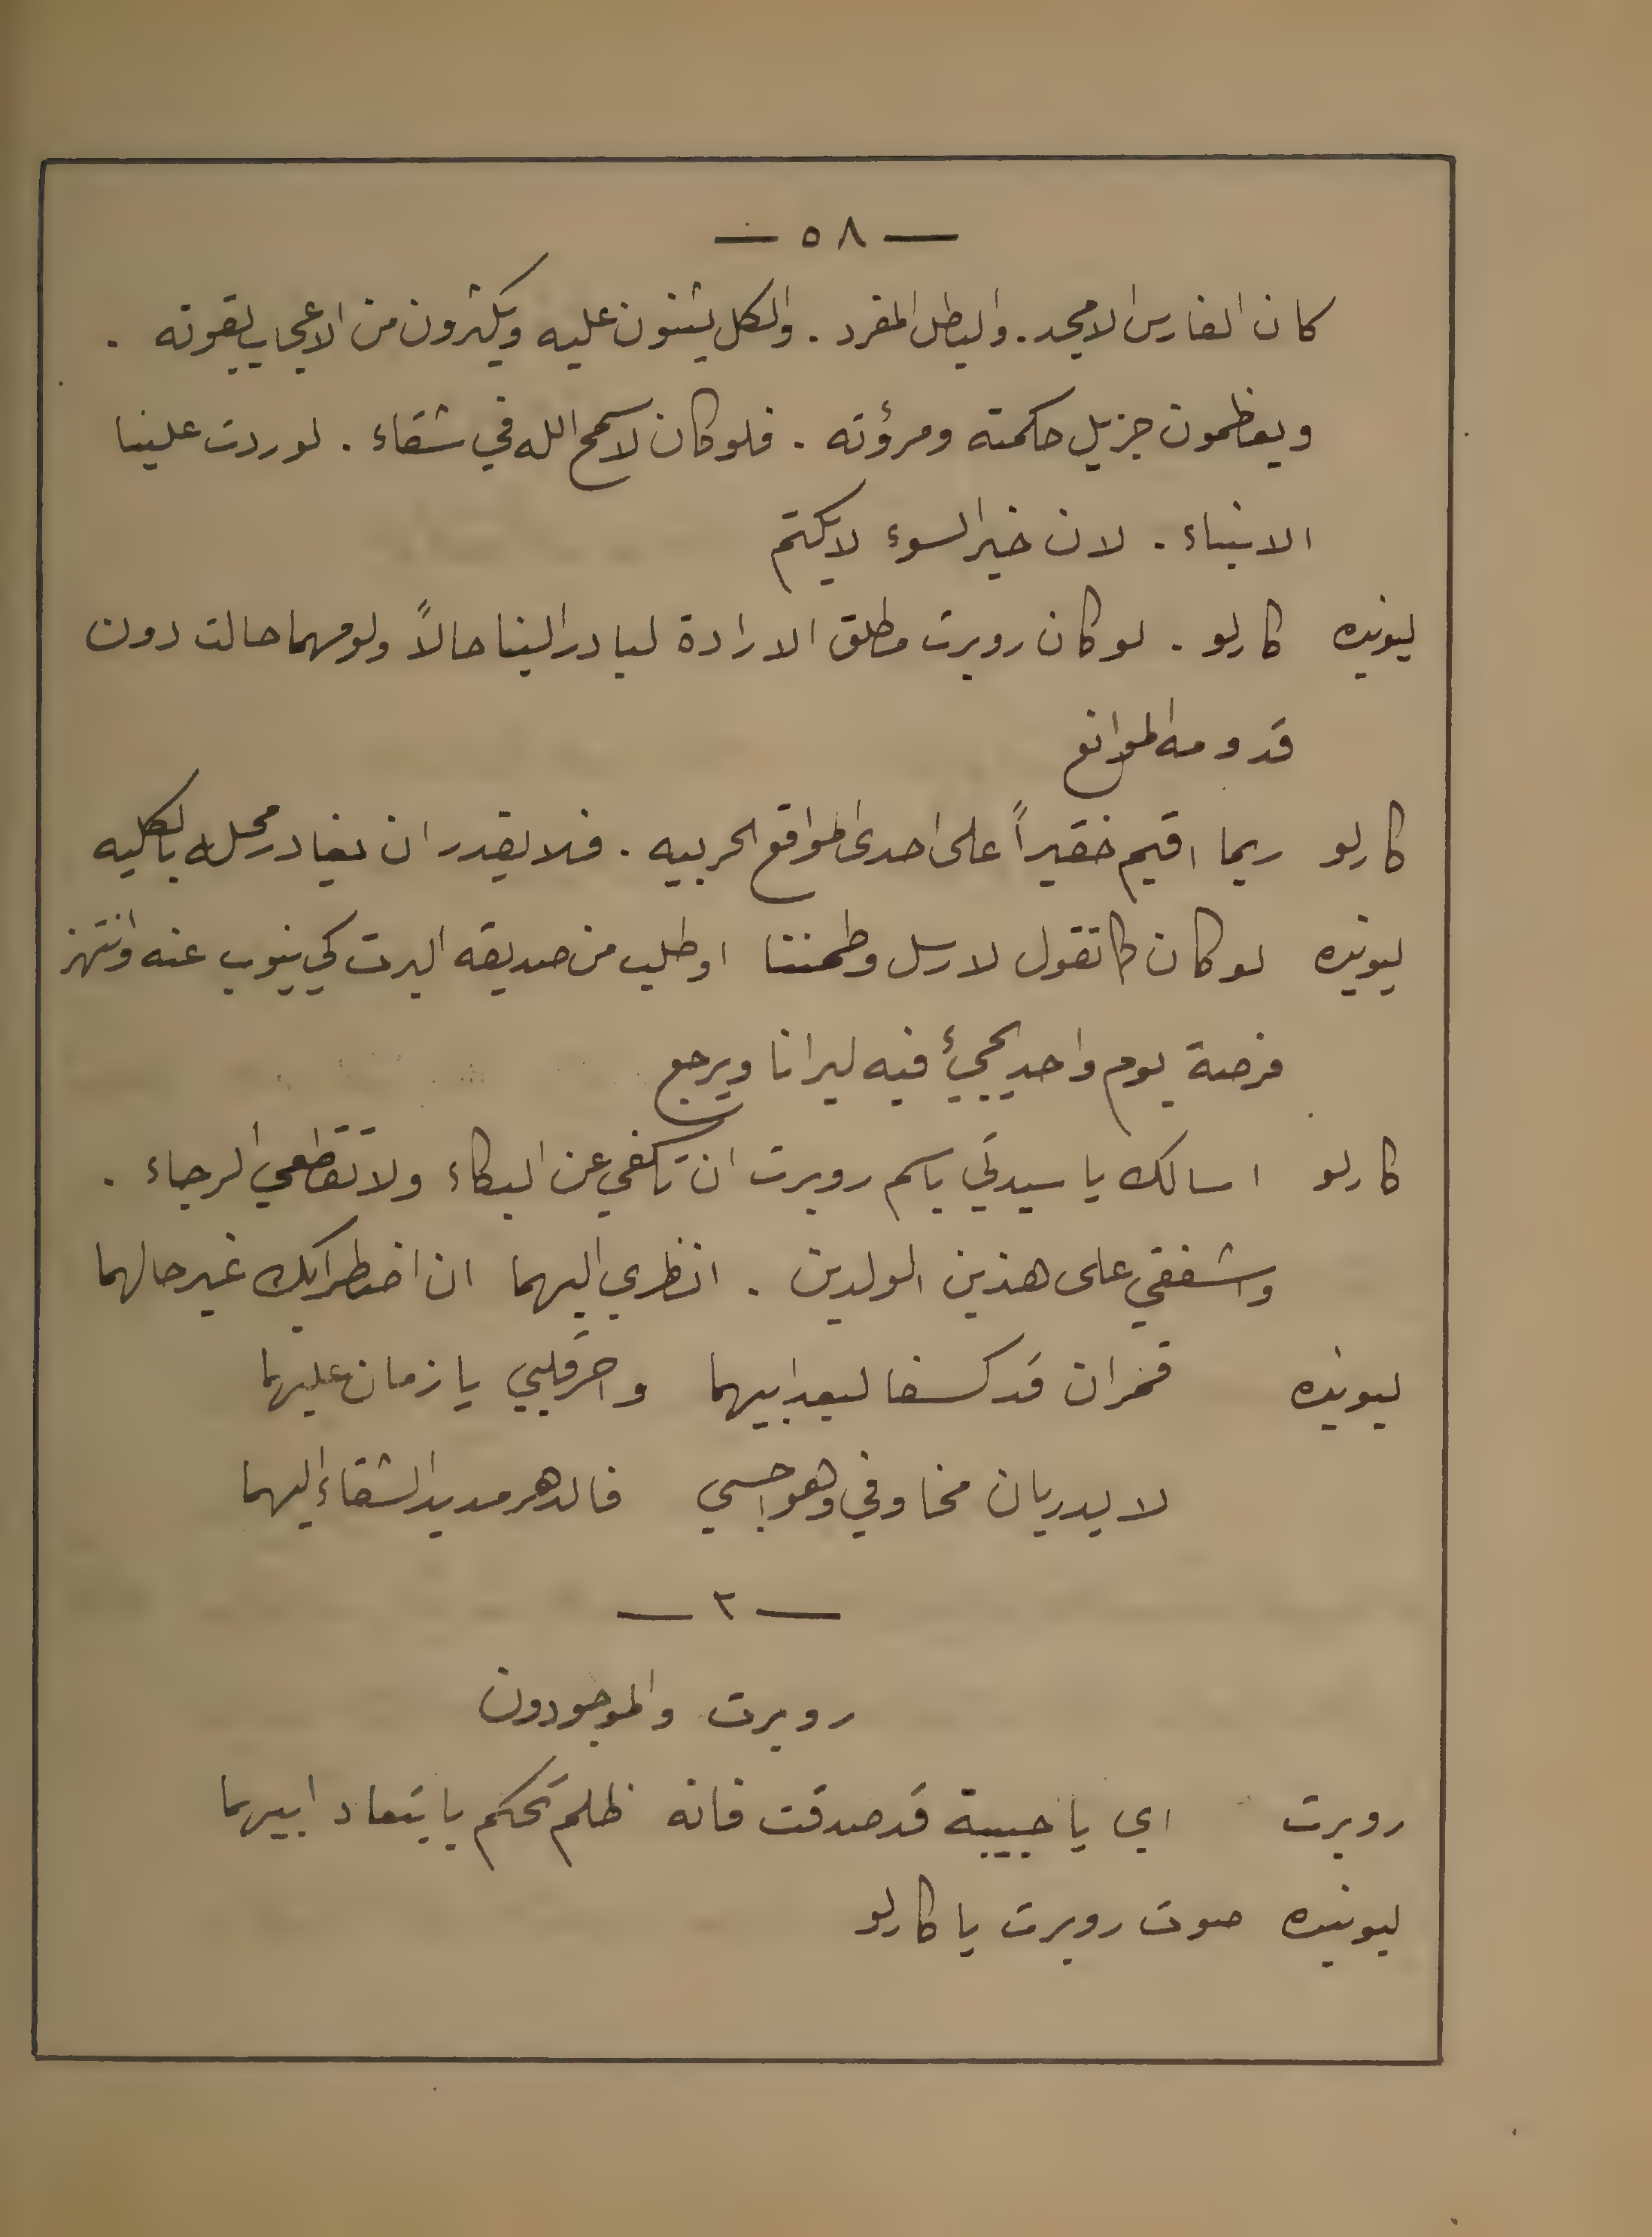 — ٥٨ —
كان الفارس الامجد . والبطل المفرد . والكل يثنون عليه ويكثرون من الاعجاب بقوته .
ويعظمون جزيل حكمته ومرؤته . فلو كان لا سمح الله في شقاء . لوردت علينا
الانباء . لان خبر السوء لا يكتم
ليونيده كارلو . لو كان روبرت مطلق الارادة لبادر الينا حالاً ولو مهما حالت دون
قدومه الموانع
كارلو ربما اقيم خفيراً على احدى المواقع الحربيه . فلا يقدر ان يغادر محله بالكليه
ليونيده لو كان كما تقول لارسل وطمننا او طلب من صديقه البرت كي ينوب عنه وانتهز
فرصة يوم واحد يجيئ فيه ليرانا ويرجع
كارلو اسالك يا سيدتي باسم روبرت ان تكفي عن البكاء ولا تقطعي الرجاء .
واشفقي على هذين الولدين . انظري اليهما ان اضطرابك غير حالهما
ليونيده قمران قد كسفا لبعد ابيهما واحر قلبي يا زمان عليهما
لا يدريان مخاوفي وهواجسي فالدهر مد يد الشقاء اليهما
— ٢ —
روبرت والموجودون
روبرت اي يا حبيبة قد صدقت فانه ظلم تحكم بابتعاد ابيهما
ليونيده صوت روبرت يا كارلو